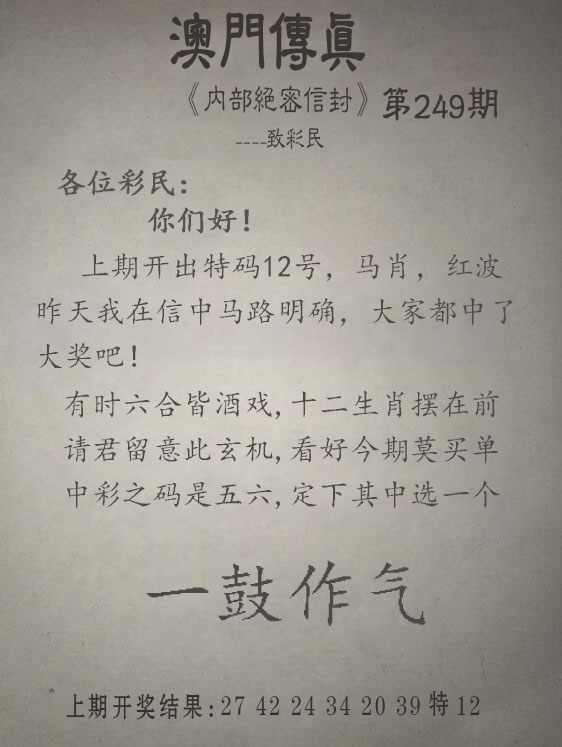 澳門傳真
《内部絕密信封》第249期
----致彩民
各位彩民:
你们好!
上期开出特码12号，马肖，红波
昨天我在信中马路明确，大家都中了
大奖吧!
有时六合皆酒戏,十二生肖摆在前
请君留意此玄机,看好今期莫买单
中彩之码是五六,定下其中选一个
一鼓作气
上期开奖结果:27 42 24 34 20 39 特 12